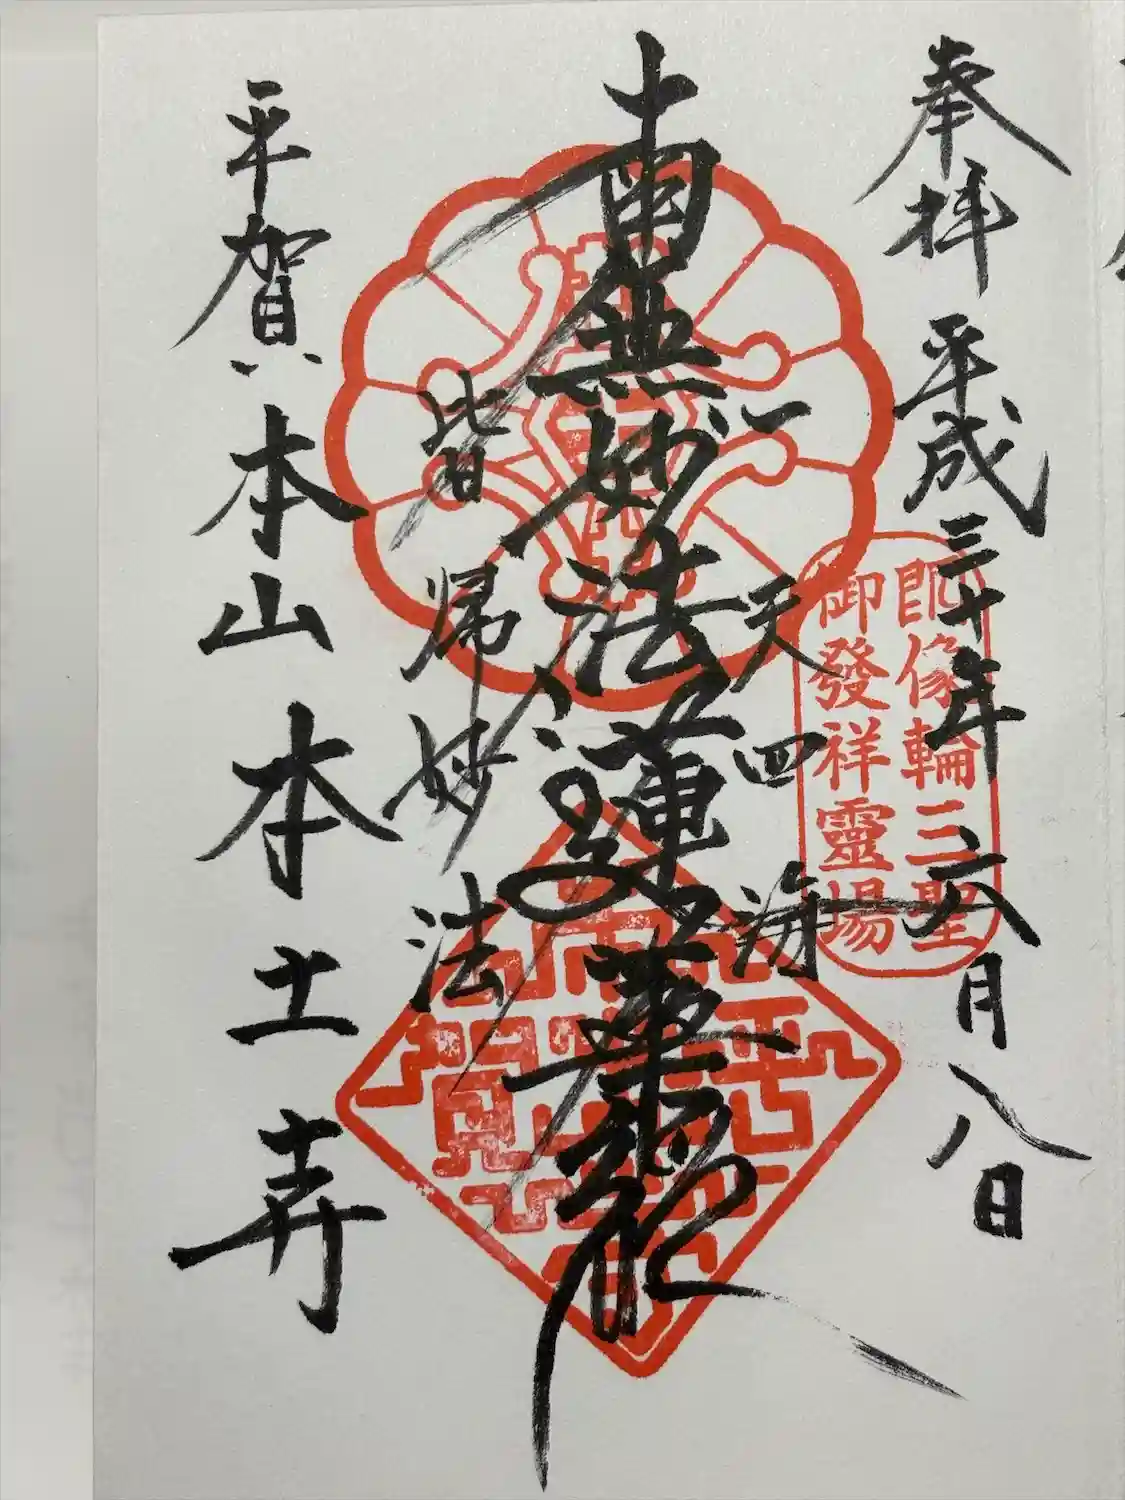 奉拝 平成三十年六月八日
朗像輪三聖
御發祥靈場
一天四海
南無妙法蓮華経
皆帰妙法
平賀 本山 本土寺